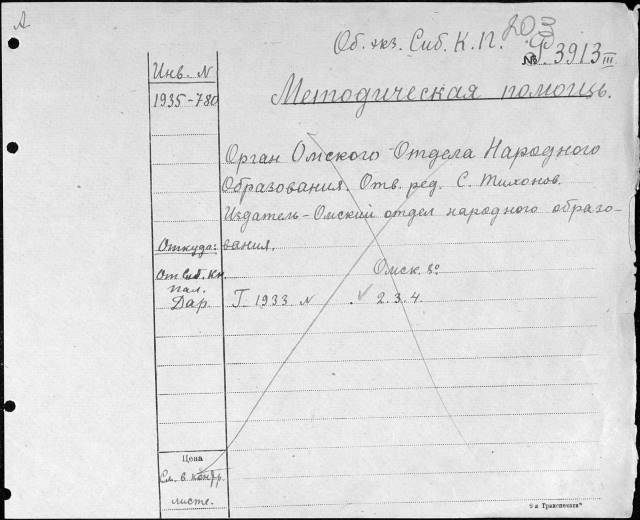 А
Об. экз. Сиб. К.П. 203
№ 3913 III
Инв. N
1935-780
Методическая помощь.
Орган Омского Отдела Народного
Образования. Отв. ред. С. Тихонов.
Издатель-Омский отдел народного образо-
Откуда: вания.
От Сиб. Кн. Омск. 8º
пал.
Дар. Г. 1933 N . ✓ 2. 3. 4.
Цена
См. в контр.
листе.
9-я Транспечать"